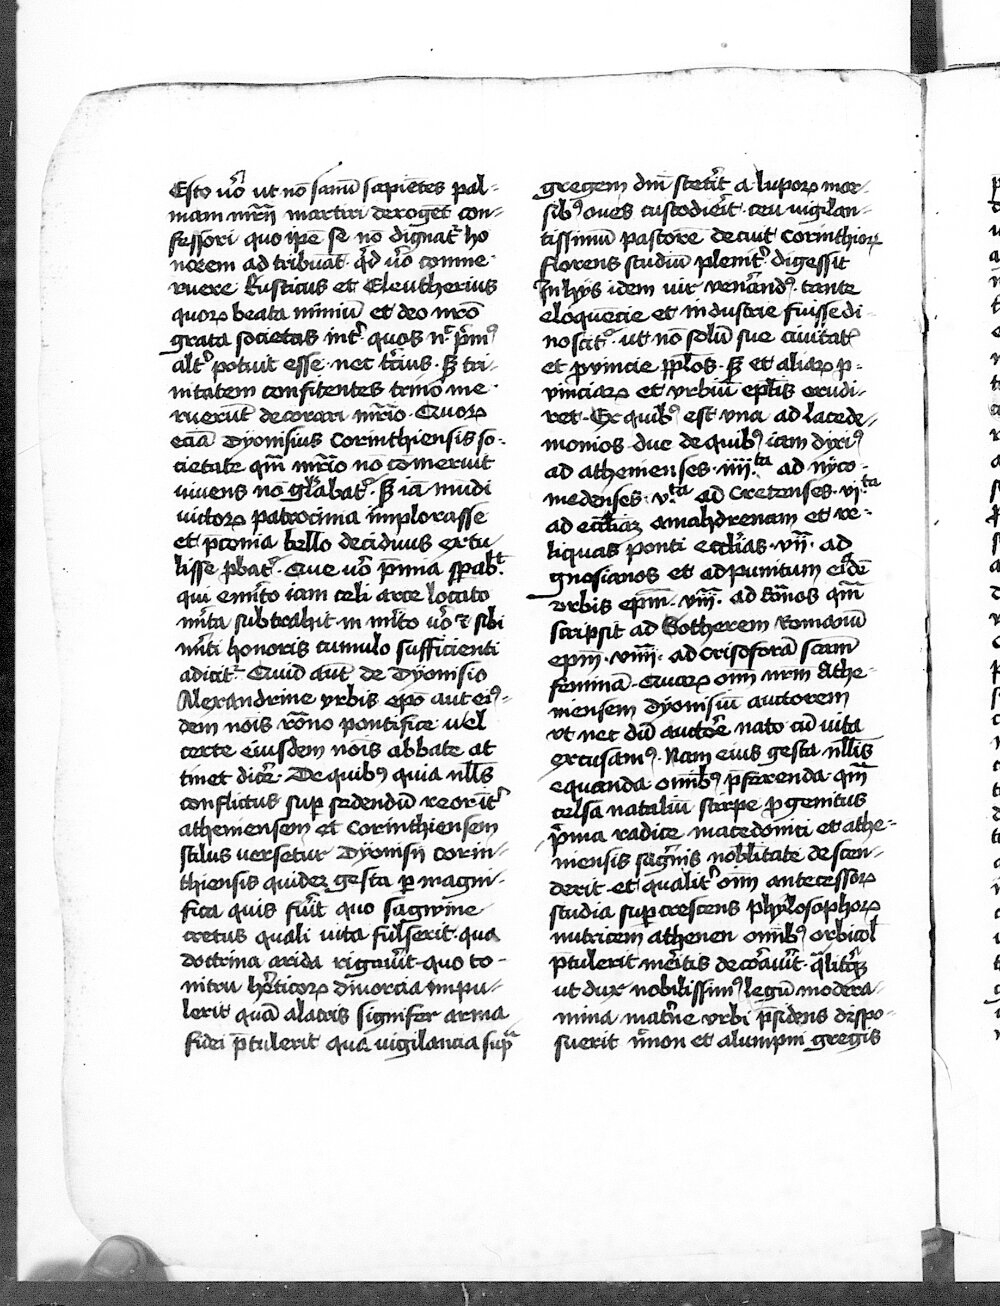 Esto vͦo ut nō sanū sapiētes pal-
mam mr̄ii martiri deroget con-
fessori quo ip̄e se nō dignat᷑ ho
norem ad tribuat. qd vͦo conme-
ruere Rusticus et Eleutherius
quoꝝ beata nimiū et deo nr̄o
grata societas int᷑ quos n᷑ p̄m᷒
alt᷑ potuit esse nec t᷑cius. ſꝫ tri-
nitatem confitentes trino me-
ruerūt decorari mr̄io. Quoꝝ
eciā Dyonisius Corinthiensis so-
cietate qm̄ mr̄io nō cōmeruit
vivens nō glābat᷑. ſꝫ iā mūdi
victoꝝ patrocinia implorasse
et p̄conia bello deciduus extu
lisse p̱bat᷑. Que vͦo
qui emīto iam celi arce locato
subtrahit
honoris cumulo sufficienti
adicit᷑. Quid aut̄ de Dyonisio
Alexandrine vrbis ep̄o aut ei᷒-
dem nōis rōno pontifice vel
certe eiusdem nōis abbate at
tinet dic᷑e. De quib᷒ quia nll̄s
conflictus sup̱ sedendū reorīt᷑
atheniensem et Corinthiensem
stilus versetur Dyonisii corin-
thiensis quideꝫ gesta ꝑ magni-
fica quis fuīt quo sangwine
cretus quali vita fulserit. qua
doctrina arida rigavīt. quo to-
nitru h᷑eticoꝝ divorcia inpu-
lerit quā alacris signifer arma
fidei p̄tulerit qua vigilancia sup᷑
gregem dn̄i stet᷑it a luporꝝ mor-
sib᷒ oves custodierit. ceu vigilan-
tissimū pastorē decuit corinthioꝝ
florens studiū plenit᷑ digessit
In hijs idem vir ven᷑and᷒. tante
eloquēcie et industrie fuisse di-
noscit᷑. ut nō solū sue civitat᷑
et p̱vincie pp̄los. ſꝫ et alіaꝝ p̱-
vinciaꝝ et vrbiū ep̄lis erudi-
ret. Ex quib᷒ est vna ad lacede-
monios due de quib᷒ iam dixi᷒
ad athenienses. iiii.ta ad nyco-
medenses. v.ta ad Cretenses. vi.ta
ad ecc̄liaꝫ amahdrenam et re-
liquas ponti ecc̄lias. vii. ad
gnosianos et ad punitum eiꝰdē
vrbis ep̄m. viii. ad Rōnos qm̄
scripsit ad Sotherem Romanū
ep̄m. viiii. ad Crisoforā scām
feminā. Quaꝝ om̄ nr̄m Athe-
niensem Dyonisiū auctorem
vt nec dū auctōre nato cū vita
excusam᷒. Nam eius gesta nll̄is
equanda om̄ib᷒ p̄ferenda. qm̄
celsa nataliū stirpe p̱genitus
p᷑ma radice macedonici et athe-
niensis sag᷑nis nobilitate descen-
derit. et qualit᷑ om̄ antecessoꝝ
studia sup̱crescens phylosophoꝝ
nutricem athenen om̄ib᷒ orbicol
p̄tulerit meritis decōravīt. q̄litqꝫ
ut dux nobilissim᷒ legū modera-
mina mat᷑ne vrbi p̄sidens dispo-
suerit n̄non et alumpni gregis